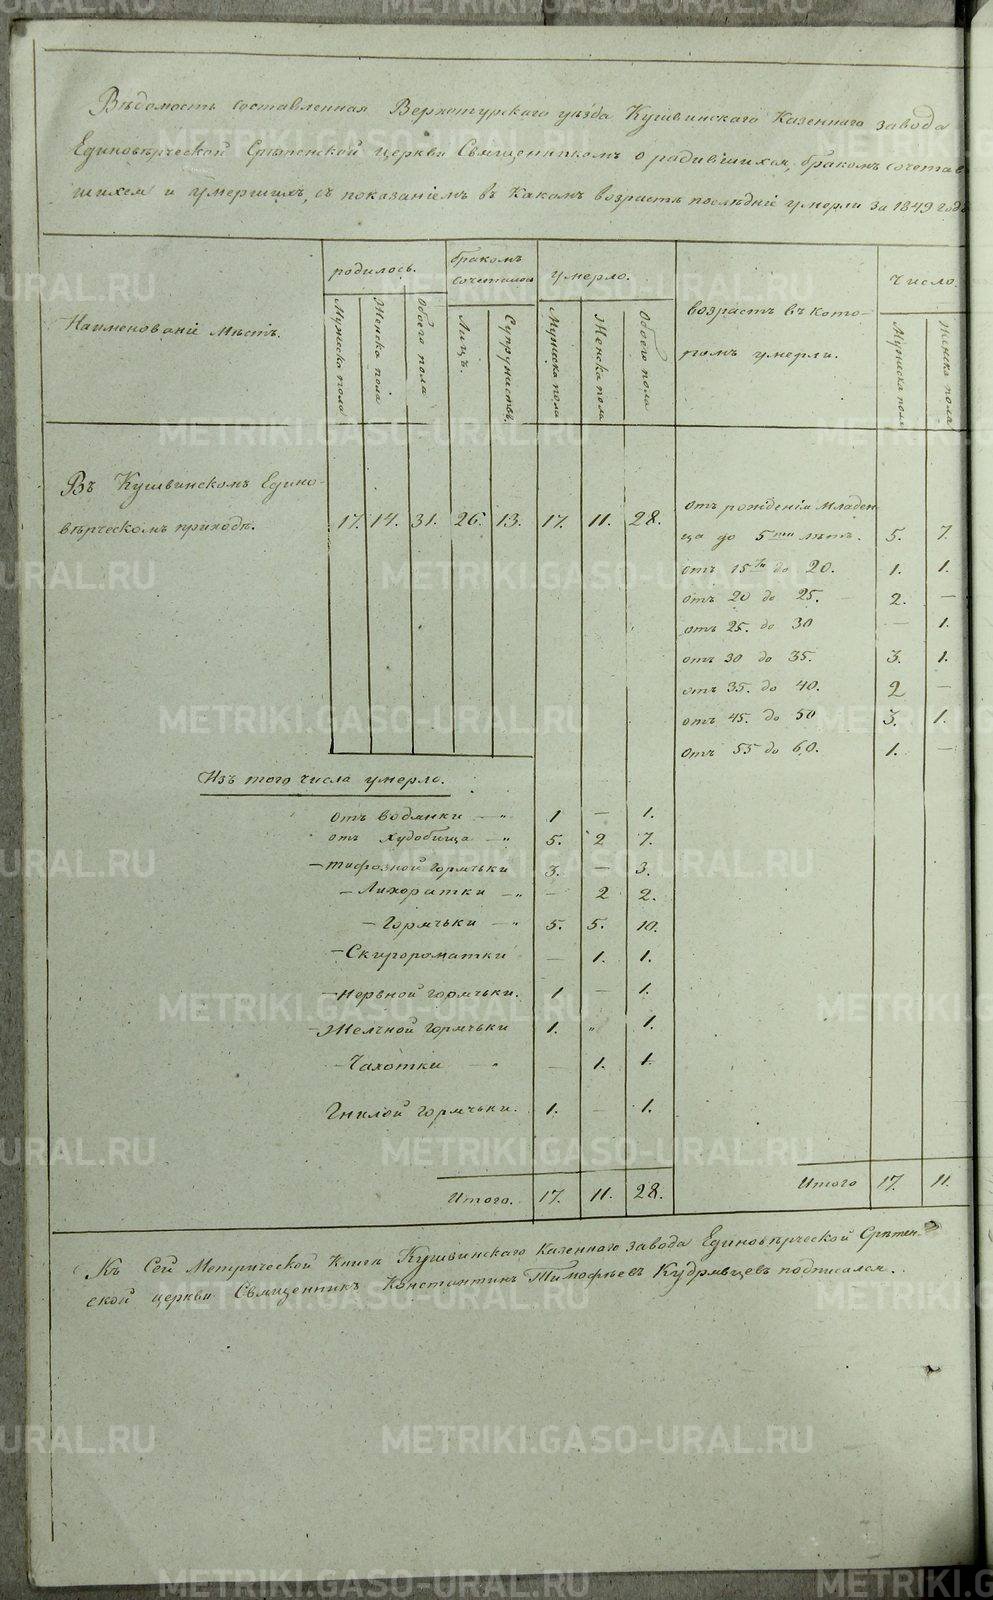 Вѣдомость составленная Верхотурскаго уѣзда Кушвинскаго Казеннаго завода
Единовѣрческой Срѣтенской церкви Священникомъ о родившихся, бракомъ сочетав
шихся и умершихъ, съ показаніемъ въ какомъ возрастѣ послѣдніе умерли за 1849 годъ
Наименованіе Мѣстъ.
родилось.
бракомъ
сочеталось
умерло.
возрастъ въ кото-
ромъ умерли.
Число
Мужска пола
Женска пола
Обоего пола
Лицъ.
Супружствъ.
Мужска пола
Женска пола
Обоего пола
Мужска пола
Женска пола
Въ Кушвинскомъ Едино-
вѣрческомъ приходѣ. 17. 14. 31. 26. 13. 17. 11. 28.
отъ рожденія младен
ца до 5ти лѣтъ. 5. 7.
отъ 15ти до 20. 1. 1.
отъ 20 до 25. 2. —
отъ 25. до 30 — 1.
отъ 30 до 35. 3. 1.
отъ 35. до 40. 2 —
отъ 45. до 50 3. 1.
отъ 55 до 60. 1. —
Изъ того числа умерло.
отъ водянки — „ 1 — 1.
отъ худобища — „ 5. 2 7.
— тифозной горячьки 3. — 3.
— Лихоратки — „ — 2 2.
— Горячьки — „ 5. 5. 10.
— 1. 1.
— Нервной горячьки. 1 — 1.
— Желчной горячьки 1. „ 1.
— Чахотки — „ — 1. 1.
Гнилой горячьки. 1. — 1.
Итого. 17. 11. 28.
Итого 17. 11.
Къ Сей Метрической Книгѣ Кушвинскаго Казеннаго завода Единовѣрческой Срѣтен-
ской церкви Священникъ Константинъ Тимофѣевъ Кудрявцевъ подписался.
METRIKI.GASO-URAL.RU